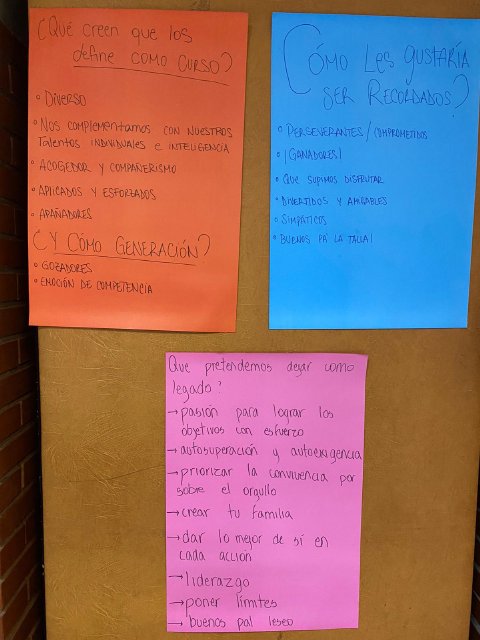 ¿Qué creen que los
define como curso?
• Diverso
• Nos complementamos con nuestros
talentos individuales e inteligencia
• Acogedor y compañerismo
• Aplicados y esforzados
• Apañadores
¿Y cómo generación?
• Gozadores
• Emoción de competencia
¿Cómo les gustaría
ser recordados?
• Perseverantes / comprometidos
• ¡Ganadores!
• Que supimos disfrutar
• Divertidos y amigables
• Simpáticos
• Buenos pa' la talla!
Que pretendemos dejar como
legado?
→ pasión para lograr los
objetivos con esfuerzo
→ autosuperación y autoexigencia
→ priorizar la convivencia por
sobre el orgullo
→ crear tu familia
→ dar lo mejor de sí en
cada acción
→ liderazgo
→ poner límites
→ buenos pal leseo